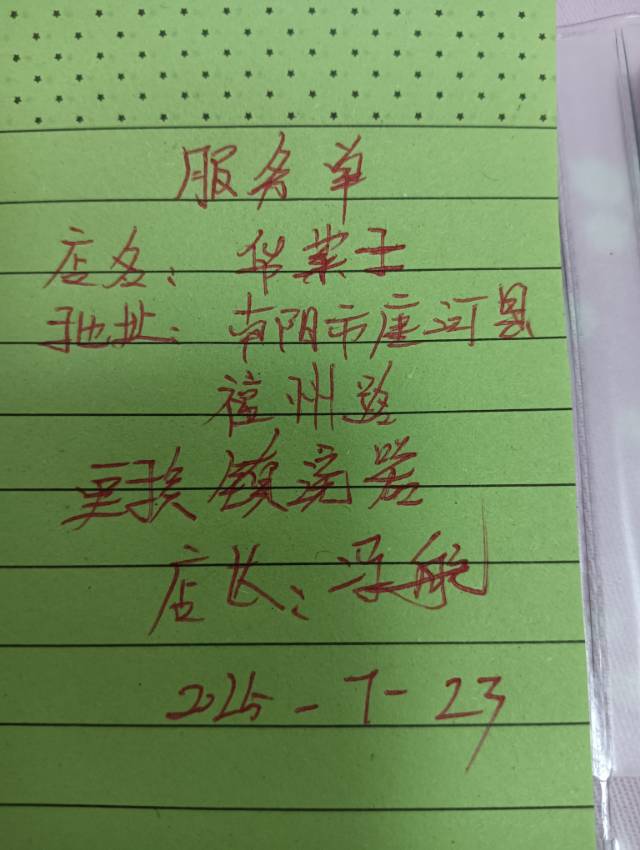 服务单
店名：华莱士
地址：南阳市唐河县
福州路
更换镇流器
店长：
2025-7-23